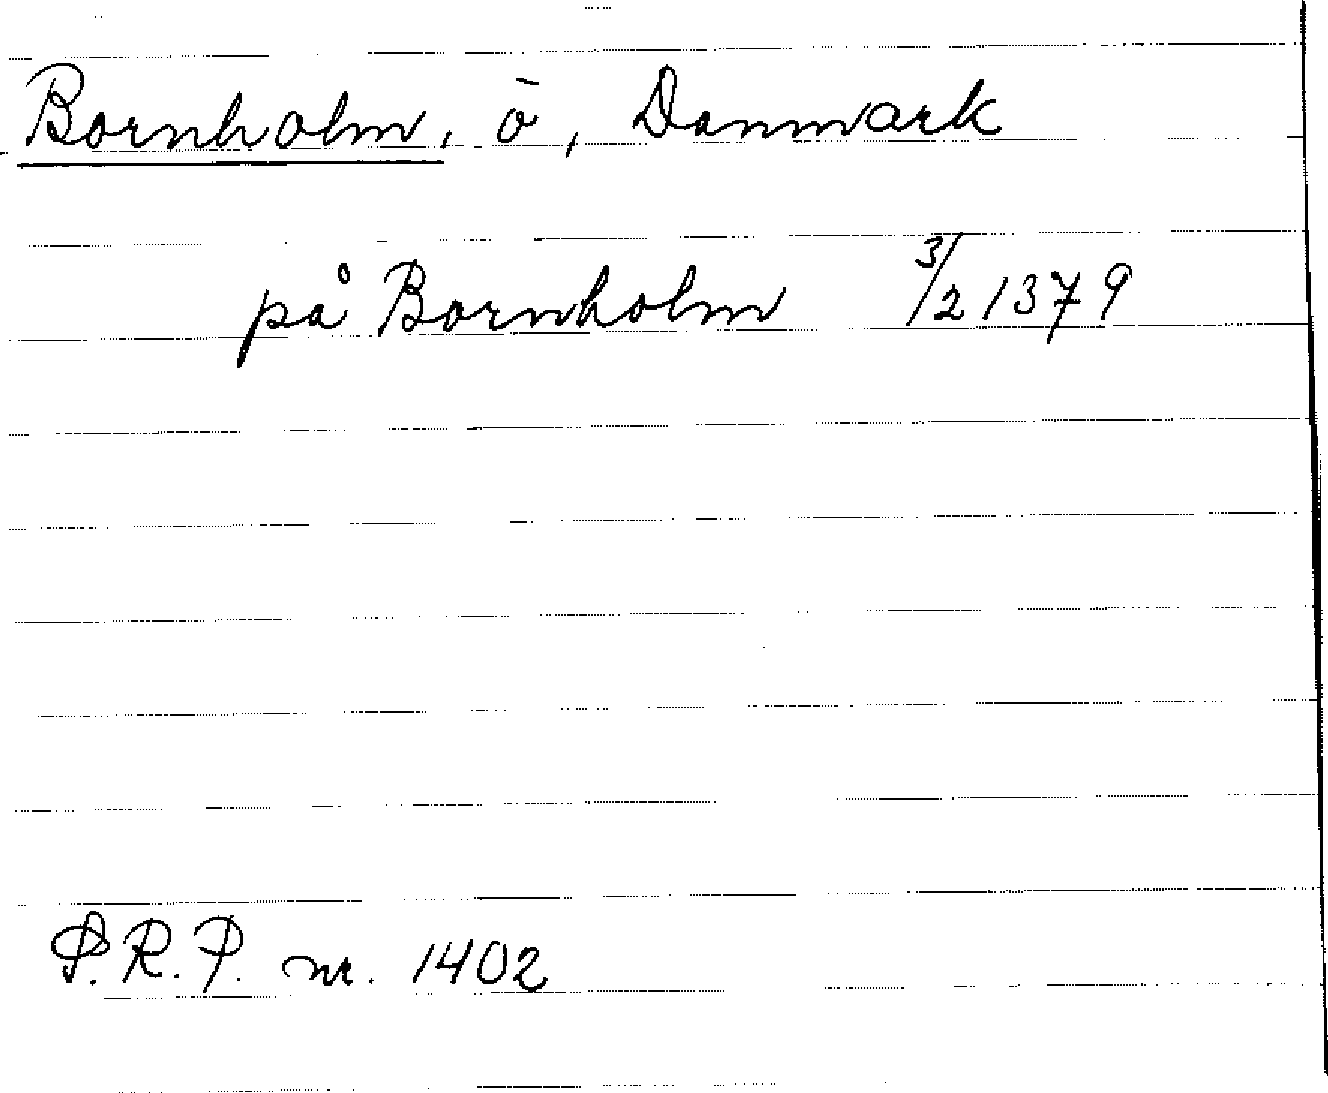 Bornholm, ö, Danmark
på Bornholm 3/2 1379
S.R.P. nr. 1402